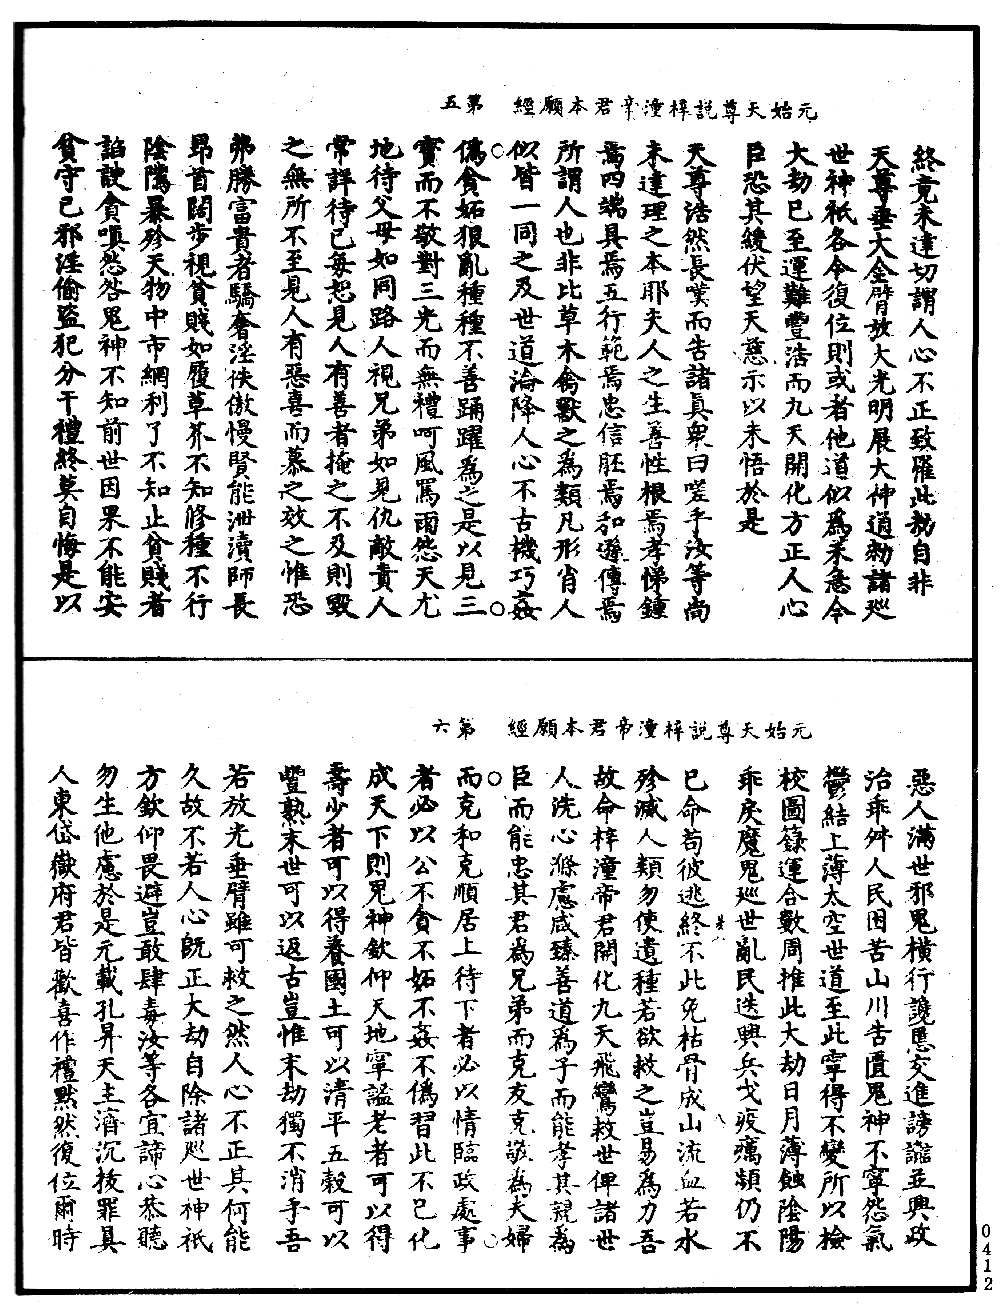 元始天尊說梓潼帝君本願經　第五
終竟未達切謂人心不正致罹此劫自非
天尊垂大金臂放大光明展大神通勑諸巡
世神祇各令復位則或者他道似爲未急今
大劫已至運難豐浩而九天開化方正人心
臣恐其緩伏望天慈示以未悟於是
天尊浩然長嘆而告諸眞衆曰嗟乎汝等尚
未達理之本耶夫人之生善性根焉孝悌鍾
焉四端具焉五行範焉忠信胚焉和遜傳焉
所謂人也非比草木禽獸之爲類凡形肖人
似皆一同之及世道淪降人心不古機巧姦
僞貪妬狠亂種種不善踊躍爲之是以見三
寶而不敬對三光而無禮呵風罵雨怨天尤
地待父母如同路人視兄弟如見仇敵責人
常詳待己每恕見人有善者掩之不及則毀
之無所不至見人有惡喜而慕之效之惟恐
弗勝富貴者驕奢淫佚傲慢賢能泄瀆師長
昂首闊步視貧賤如履草芥不知修種不行
陰隲暴殄天物中市網利了不知止貧賤者
諂諛貪嗔怨咎鬼神不知前世因果不能安
貧守己邪淫偷盜犯分干禮終莫自悔是以
元始天尊說梓潼帝君本願經　第六
惡人滿世邪鬼橫行讒慝交進謗讟並興政
治乖舛人民困苦山川告匱鬼神不寧怨氣
鬱結上薄太空世道至此寧得不變所以檢
校圖籙運合數周推此大劫日月薄蝕陰陽
乖戾魔鬼巡世亂民迭興兵戈疫癘頻仍不
已命苟彼逃終不此免枯骨成山流血若水
殄滅人類勿使遺種若欲救之豈易爲力吾
故命梓潼帝君開化九天飛鸞救世俾諸世
人洗心滌慮咸臻善道爲子而能孝其親爲
臣而能忠其君爲兄弟而克友克敬爲夫婦
而克和克順居上待下者必以情臨政處事
者必以公不貪不妬不姦不僞習此不已化
成天下則鬼神欽仰天地寧謐老者可以得
壽少者可以得養國土可以清平五穀可以
豐熟末世可以返古豈惟末劫獨不消乎吾
若放光垂臂雖可救之然人心不正其何能
久故不若人心旣正大劫自除諸巡世神祇
方欽仰畏避豈敢肆毒汝等各宜諦心恭聽
勿生他慮於是元載孔昇天主濟沉拔罪眞
人東岱嶽府君皆歡喜作禮默然復位爾時
0412